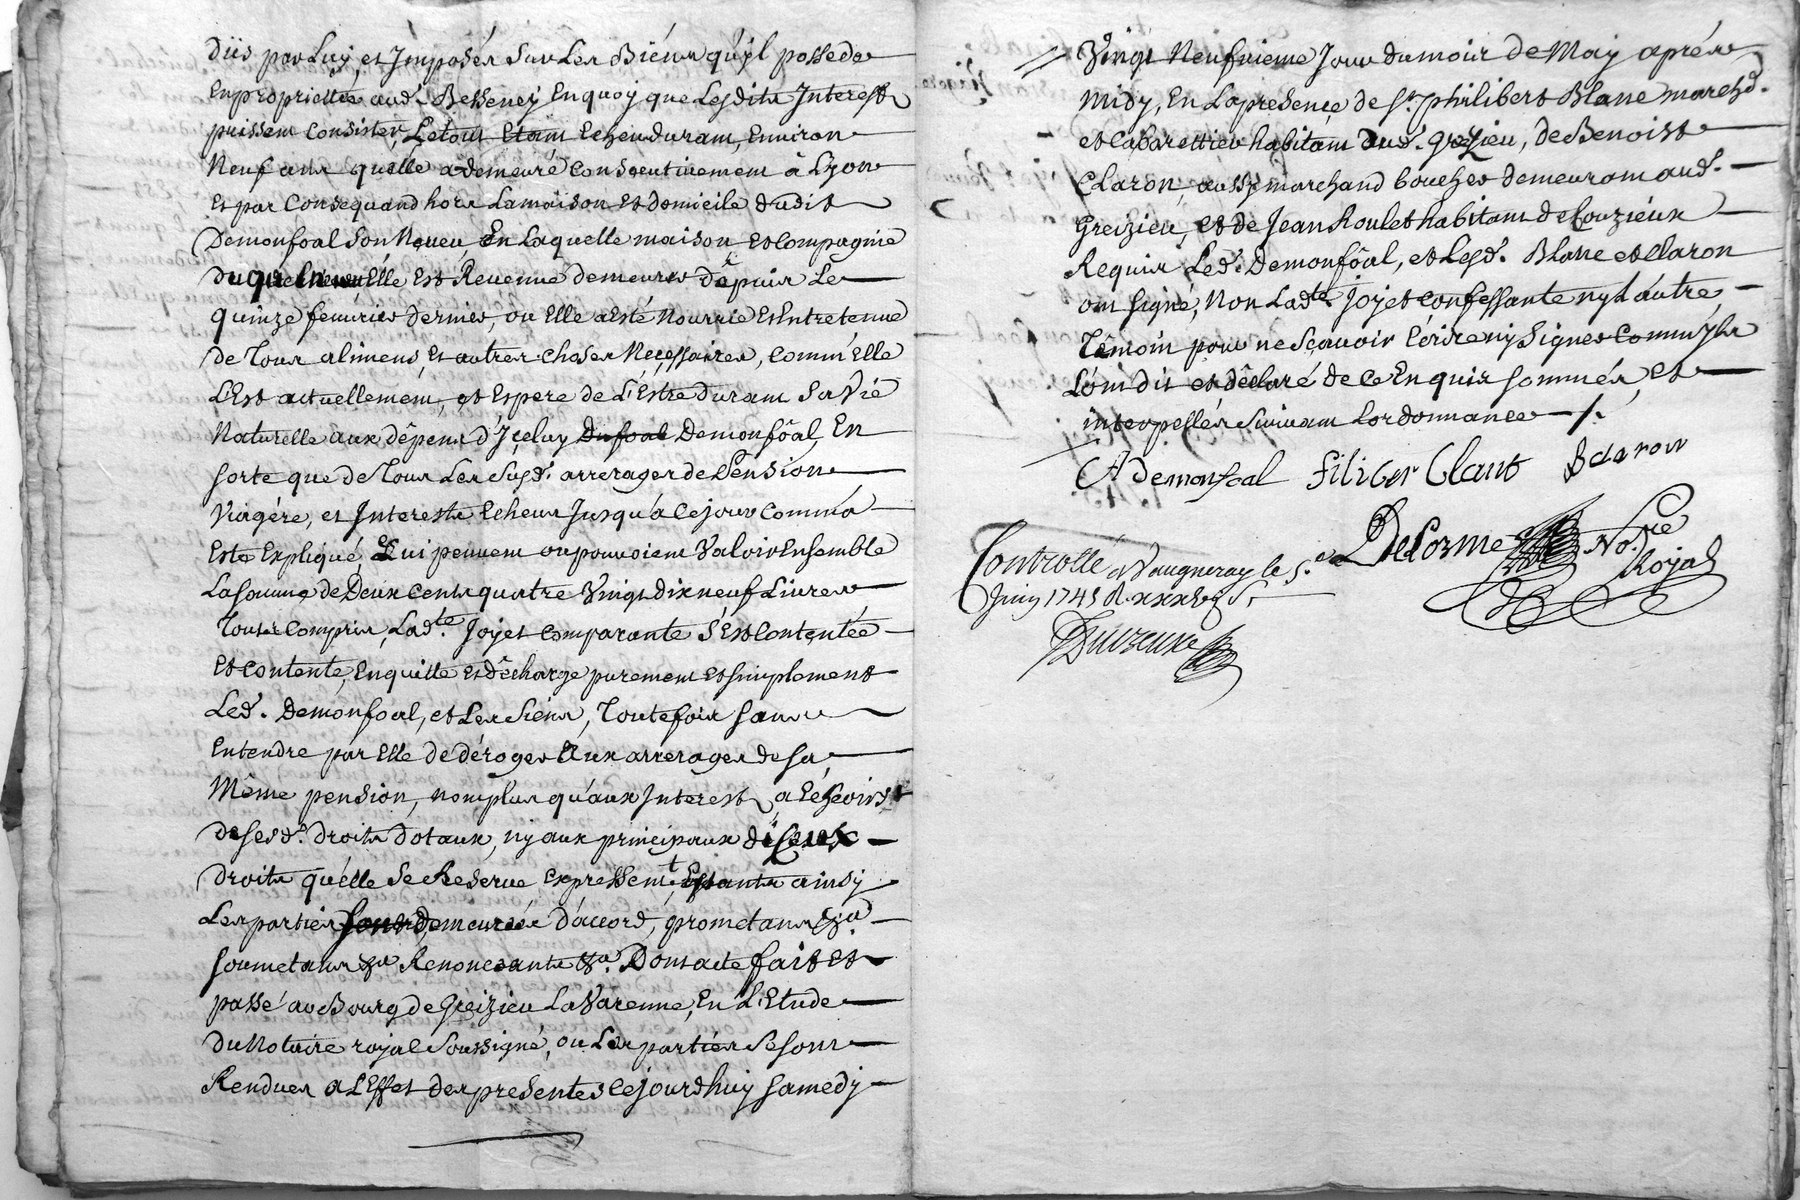 Diïs par Luy, et Jmposés Sur Les Biéns qu'yl possede
En proprietté aud. Bessenéy En quoy que Lesdits Jnterest
puissent Consister, Le tout Echeu durant, Environ
Neuf ans quélle a demeuré Consecutivement à Lyon
Et par Consequand hors La maison Et domicile dudit
Demonfoal Son Neveu En Laquelle maison et Compagnie
Duquel Elle Est Revenue demeurer Dépuis Le
quinze fevrier dernier, ou Elle a Esté Nourrie Et Entretenue
de Tous alimens, Et autres Choses Neçessaires, Comm'Elle
L'Est actuellement, et Espere de L'Estre Durant Sa Vie
Naturelle aux dépens d'Jçeluy Demonfôal, En
Sorte que de Tous Les Susd. arrerages de Pension
Viagére, et Jnterests Echeus Jusqu'á Ce jour Comm'á
Esté Expliqué, qui peuvent ou pouvoient Valoir Ensemble
La Somme de Deux Cents quatre Vingt dix neuf Livres
Tout Compris, Lad.te Joyet Comparante S'Est Contentée
Et contente, En quitte Et décharge purement Et Simplement
Led. Demonfoal, et Les Siéns, Toutefois Sans
Entendre par Elle de déroger Aux arrerages de Sa
Même pension, nomplus qu'aux Jnterest a Echeoirs
De Ses d. Droits Dotaux, ny aux principaux d'iCeux
Droits qu'élle Se Reserve Expressem.t, Estants ainsy
Les parties Demeurées D'accord, prometans &a.
Soumetans &a Renoncants &a. Dont acte fait Et
passé au Bourg de Greizieu La Varenne, En L'Etude
Du Notaire royal Soussigné, ou Les partiés Se Sont
Renduës a L'Effet des presentes Ce jourd'huy Samedy
Vingt Neufvieme Jour du mois de May aprés
Midy, En La presence de S.r philibert Blanc march.d
et Cabarettier habitant aud. Grezieu, de Benoist
Claron, aussy marchand boucher demeurant aud.
Greizieu, et de Jean Roulet habitant de Couzieux
Requis Led. Demonfôal, et Lesd. Blanc et Claron
ont signé, Non Lad.te Joyet Confessante ny L'autre
Témoin pour ne Sçavoir Ecrire ny Signer Comm'yls
L'ont dit et déclaré de Ce Enquis Sommés, et
interpellés Suivant Lordonnance ./.
A Demonfoal filiber Clant B claron
DeLorme No.re
Royal
Controllé a Vaugneray le 5.e
Juin 1745 R.